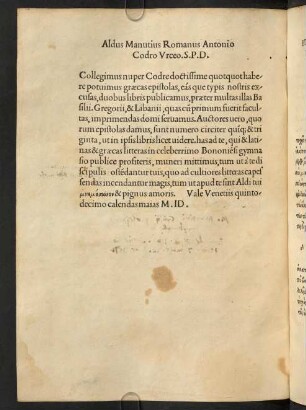 Aldus Manutius Romanus Antonio
Codro Vrceo.S.P.D.
Collegimus nuper Codre doctissime quotquot habe
re potuimus græcas epistolas, eás que typis nostris ex
cusas, duobus libris publicamus, præter multas illas Ba
silii. Gregorii, & Libanii, quas cū primum fuerit facul
tas, imprimendas domi seruamus. Auctores uero, quo
rum epistolas damus, sunt numero circiter quiq; & tri
ginta, ut in ipsis libris licet uidere. has ad te, qui & lati-
nas & græcas litteras in celeberrimo Bononiēsi gymna
sio publice profiteris, muneri mittimus, tum ut á te di
scipulis ostēdantur tuis, quo ad cultiores litteras capes
sendas incendantur magis, tum ut apud te sint Aldi tui
& pignus amoris. Vale Venetiis quinto-
decimo calendas maias M.ID.